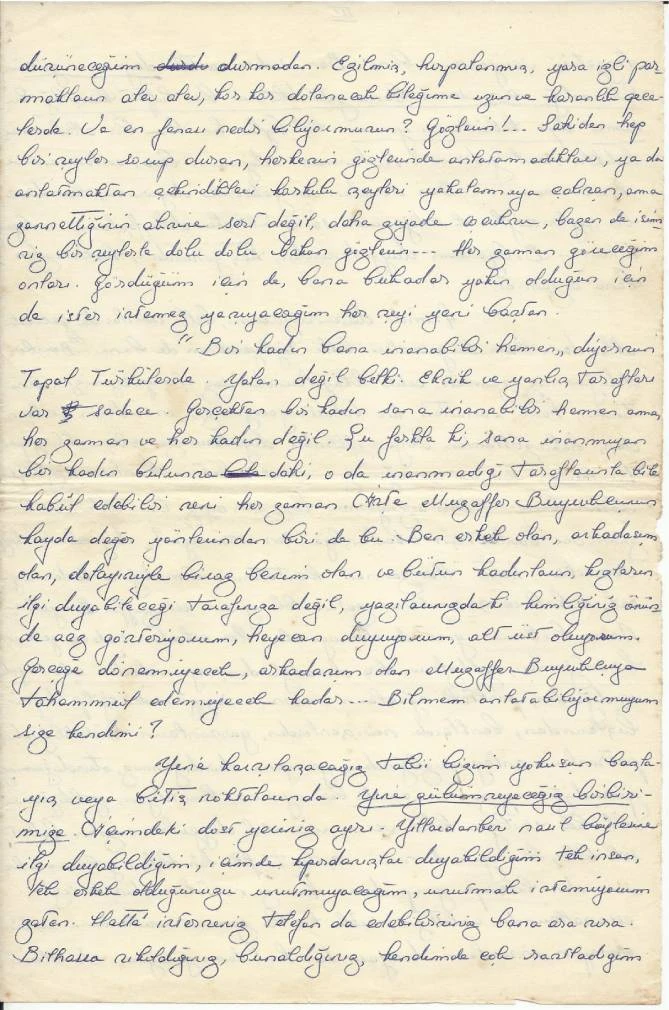 III
düşüneceğim durdu durmadan. Ezilmiş, hırpalanmış, yara izli par-
makların alev alev, kor kor dolanacak bileğime uzun ve karanlık gece-
lerde. Ve en fenası nedir biliyormusun? Gözlerin!... Sahiden hep
bir şeyler sorup duran, herkesin gözlerinde anlatamadıkları, ya da
anlatmaktan çekindikleri korkulu şeyleri yakalamıya çalışan, ama
zannettiğinin aksine sert değil, daha ziyade çocuksu, bazen de isim-
siz bir şeylerle dolu dolu bakan gözlerin... Her zaman göreceğim
onları. Gördüğüm için de, bana bukadar yakın olduğun için
de ister istemez yaşıyacağım her şeyi yeni baştan.
" Bir kadın bana inanabilir hemen,, diyorsun
Topal Türkülerde. Yalan değil belki. Eksik ve yanlış tarafları
var sadece. Gerçekten bir kadın sana inanabilir hemen ama,
her zaman ve her kadın değil. Şu farkla ki, sana inanmıyan
bir kadın bulunsa dahi, o da inanmadığı taraflarınla bile
kabûl edebilir seni her zaman. İşte Muzaffer Buyrukçunun
kayda değer yönlerinden biri de bu. Ben erkek olan, arkadaşım
olan, dolayısiyle biraz benim olan ve bütün kadınların, kızların
ilgi duyabileceği tarafınıza değil, yazılarınızdaki kimliğiniz önün-
de acz gösteriyorum, heyecan duyuyorum, alt üst oluyorum.
Gerçeğe dönemiyecek, arkadaşım olan Muzaffer Buyrukçuya
tahammül edemiyecek kadar... Bilmem anlatabiliyormuyum
size kendimi?
Yine karşılaşacağız tabii bizim yokuşun başla-
yış veya bitiş noktalarında. Yine gülümsiyeceğiz birbiri-
mize. İçimdeki dost yeriniz ayrı. Yıllardanberi nasıl böylesine
ilgi duyabildiğim, içimde kıpırdanışlar duyabildiğim tek insan,
tek erkek olduğunuzu unutmuyacağım, unutmak istemiyorum
zaten. Hattâ isterseniz telefon da edebilirsiniz bana ara sıra.
Bilhassa sıkıldığınız, bunaldığınız, kendimde çok rastladığım